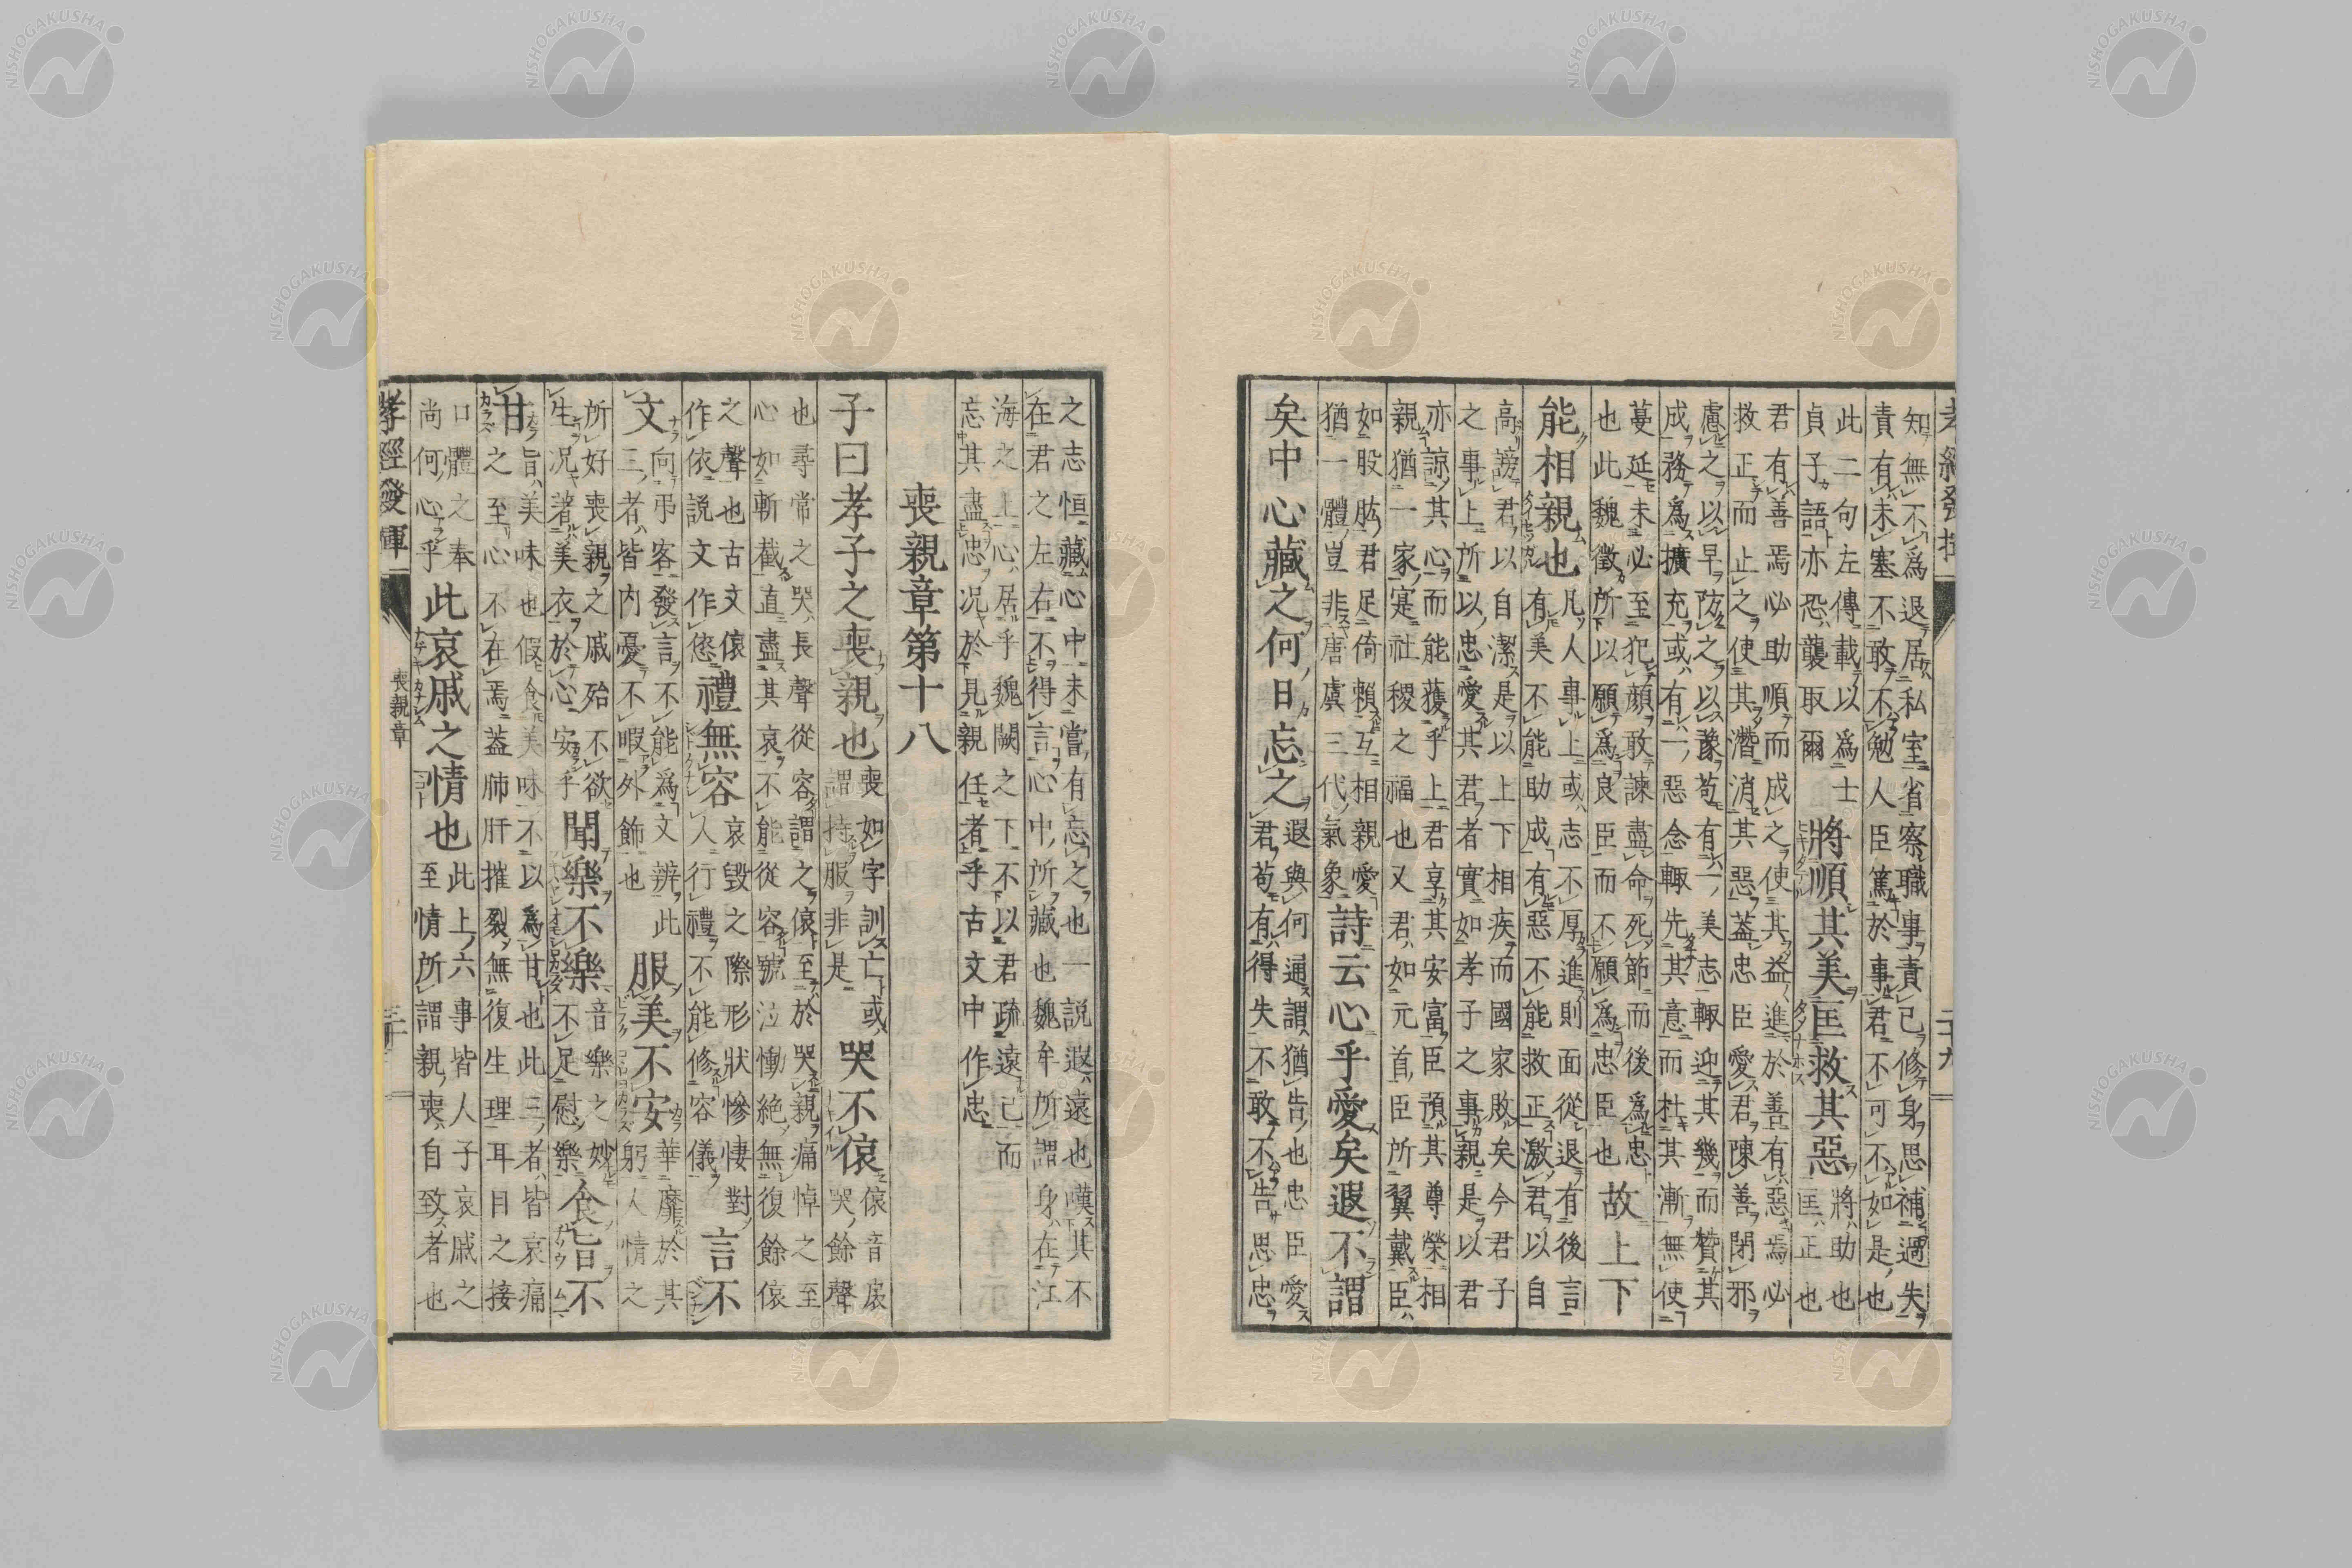 孝經發揮 二十九
知無不爲退居私室省察職事責己修身思補過失
責有未塞不敢不勉人臣篤於事君不可不如是也
此二句左傳載以爲士
貞子語亦恐襲取爾
將順其美匡救其惡
將助也
匡正也
君有善焉必助順而成之使其益進於善有惡焉必
救正而止之使其潛消其惡蓋忠臣愛君陳善閉邪
慮之以早防之以豫苟有一美志輒迎其幾而贊其
成務爲擴充或有一惡念輒先其意而杜其漸無使
蔓延未必至犯顔敢諫盡命死節而後爲忠
也此魏徵所以願爲良臣而不願爲忠臣也
故上下
能相親也
凡人事上或志不厚進則面從退有後言
有美不能助成有惡不能救正激君以自
高謗君以自潔是以上下相疾而國家敗矣今君子
之事上所以忠愛其君者實如孝子之事親是以君
亦諒其心而能獲乎上君享其安富臣預其尊榮相
親猶一家寔社稷之福也又君如元首臣所翼戴臣
如股肱君足倚賴互相親愛
猶一體豈非唐虞三代氣象
詩云心乎愛矣遐不謂
矣中心藏之何日忘之
遐與何通謂猶告也忠臣愛
君苟有得失不敢不告思忠
之志恒藏心中未嘗有忘之也一説遐遠也嘆其不
在君之左右不得言心中所藏也魏牟所謂身在江
海之上心居乎魏闕之下不以君疏遠己而
忘其盡忠況於見親任者乎古文中作忠
喪親章第十八
子曰孝子之喪親也
喪如字訓亡或
謂持服非是
哭不偯
偯音扆
哭餘聲
也尋常之哭長聲從容謂之偯至於哭親痛悼之至
心如斬截直盡其哀不能從容號泣慟絶無復餘偯
之聲也古文偯
作依説文作㥋
禮無容
哀毀之際形狀慘悽對
人行禮不能修容儀
言不
文
向弔客發言不能爲文辨此
三者皆内憂不暇外飾也
服美不安
華靡於其
躬人情之
所好喪親之戚殆不欲
生況著美衣於心安乎
聞樂不樂
音樂之妙
不足慰樂
食旨不
甘
旨美味也假食美味不以爲甘也此三者皆哀痛
之至心不在焉蓋肺肝摧裂無復生理耳目之接
口體之奉
尚何心乎
此哀戚之情也
此上六事皆人子哀戚之
至情所謂親喪自致者也
孝經發揮 喪親章 三十